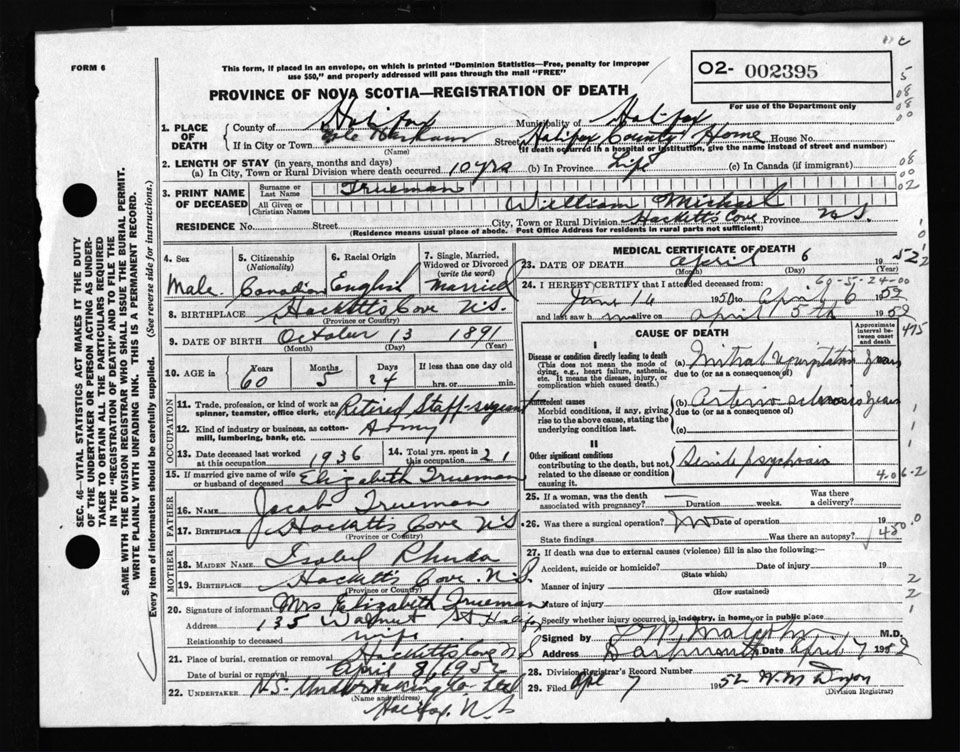 FORM 6
This form, if placed in an envelope, on which is printed "Dominion Statistics—Free, penalty for improper
use $50," and properly addressed will pass through the mail "FREE"
PROVINCE OF NOVA SCOTIA—REGISTRATION OF DEATH
02- 002395
For use of the Department only
1. PLACE OF DEATH
County of Halifax Municipality of Halifax
If in City or Town (Name) Street Halifax County Home House No.
(If death occurred in a hospital or institution, give the name instead of street and number)
2. LENGTH OF STAY (in years, months and days)
(a) In City, Town or Rural Division where death occurred 10 yrs (b) In Province Life (c) In Canada (if immigrant)
3. PRINT NAME OF DECEASED
Surname or Last Name Trueman
All Given or Christian Names William Michael
RESIDENCE No. Street City, Town or Rural Division Hacketts Cove Province N.S.
(Residence means usual place of abode. Post Office Address for residents in rural parts not sufficient)
4. Sex Male
5. Citizenship (Nationality) Canadian
6. Racial Origin English
7. Single, Married, Widowed or Divorced (write the word) Married
8. BIRTHPLACE Hacketts Cove N.S.
(Province or Country)
9. DATE OF BIRTH October 13 1891
(Month) (Day) (Year)
10. AGE in Years 60 Months 5 Days 24 If less than one day old hrs. or min.
OCCUPATION
11. Trade, profession, or kind of work as spinner, teamster, office clerk, etc. Retired Staff-sergeant
12. Kind of industry or business, as cotton-mill, lumbering, bank, etc. Army
13. Date deceased last worked at this occupation 1936
14. Total yrs. spent in this occupation 21
15. If married give name of wife or husband of deceased Elizabeth Trueman
FATHER
16. NAME Jacob Trueman
17. BIRTHPLACE Hacketts Cove N.S
(Province or Country)
MOTHER
18. MAIDEN NAME Isabel
19. BIRTHPLACE Hacketts Cove N.S.
(Province or Country)
20. Signature of informant Mrs Elizabeth Trueman
Address 135 Walnut St Halifax
Relationship to deceased wife
21. Place of burial, cremation or removal Hacketts Cove N S
Date of burial or removal April 8, 1952
22. UNDERTAKER N.S. Undertaking Co Ltd
(Name and address)
Halifax, N.S
MEDICAL CERTIFICATE OF DEATH
23. DATE OF DEATH April 6 1952
(Month) (Day) (Year)
24. I HEREBY CERTIFY that I attended deceased from:
June 14 1950 to April 6 1952
and last saw h m alive on April 5th 1952
CAUSE OF DEATH
Approximate interval between onset and death
I
Disease or condition directly leading to death
(This does not mean the mode of dying, e.g., heart failure, asthenia, etc. It means the disease, injury, or complication which caused death.)
(a) Mitral years
due to (or as a consequence of)
Antecedent causes
Morbid conditions, if any, giving rise to the above cause, stating the underlying condition last.
(b) Arterio sclerosis years
due to (or as a consequence of)
(c)
II
Other significant conditions
contributing to the death, but not related to the disease or condition causing it.
Senile psychosis
25. If a woman, was the death associated with pregnancy? Duration weeks. Was there a delivery?
26. Was there a surgical operation? No Date of operation 19
State findings Was there an autopsy?
27. If death was due to external causes (violence) fill in also the following:
Accident, suicide or homicide? Date of injury 19
(State which)
Manner of injury
(How sustained)
Nature of injury
Specify whether injury occurred in industry, in home, or in public place
Signed by M.D.
Address Dartmouth Date April 7 1952
28. Division Registrar's Record Number
29. Filed Apl 7 1952
(Division Registrar)
SEC. 46—VITAL STATISTICS ACT MAKES IT THE DUTY
OF THE UNDERTAKER OR PERSON ACTING AS UNDER-
TAKER TO OBTAIN ALL THE PARTICULARS REQUIRED
IN THE "REGISTRATION OF DEATH" AND TO FILE THE
SAME WITH THE DIVISION REGISTRAR WHO SHALL ISSUE THE BURIAL PERMIT.
WRITE PLAINLY WITH UNFADING INK. THIS IS A PERMANENT RECORD.
Every item of information should be carefully supplied. (See reverse side for instructions.)